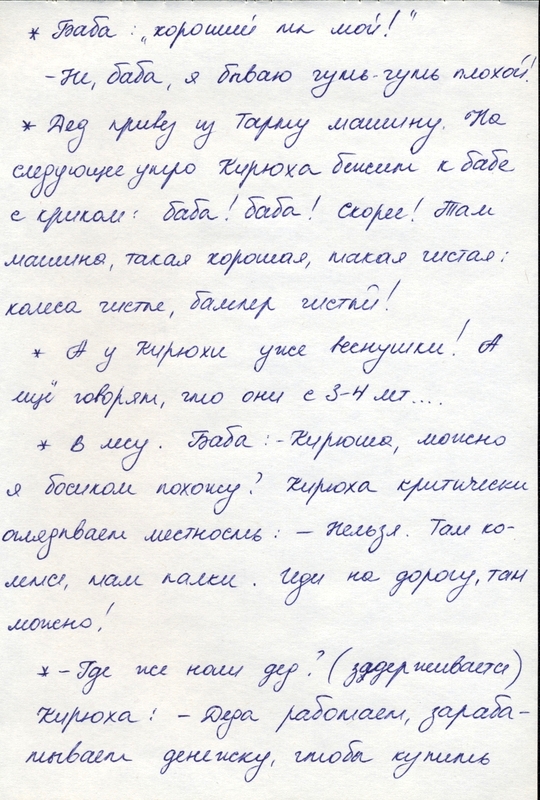 * Баба: „хороший ты мой!"
- Не, баба, я бываю чуть-чуть плохой!
* Дед привёз из Тарту машину. На
следующее утро Кирюха бежит к бабе
с криком: баба! баба! Скорее! Там
машина, такая хорошая, такая чистая:
колёса чистые, бампер чистый!
* А у Кирюхи уже веснушки! А
ещё говорят, что они с 3-4 лет....
* В лесу. Баба: - Кирюша, можно
я босиком похожу? Кирюха критически
оглядывает местность: - Нельзя. Там ко-
лется, там палки. Иди на дорогу, там
можно!
* - Где же наш дед? (задерживается)
Кирюха: - Деда работает, зараба-
тывает денежку, чтобы купить